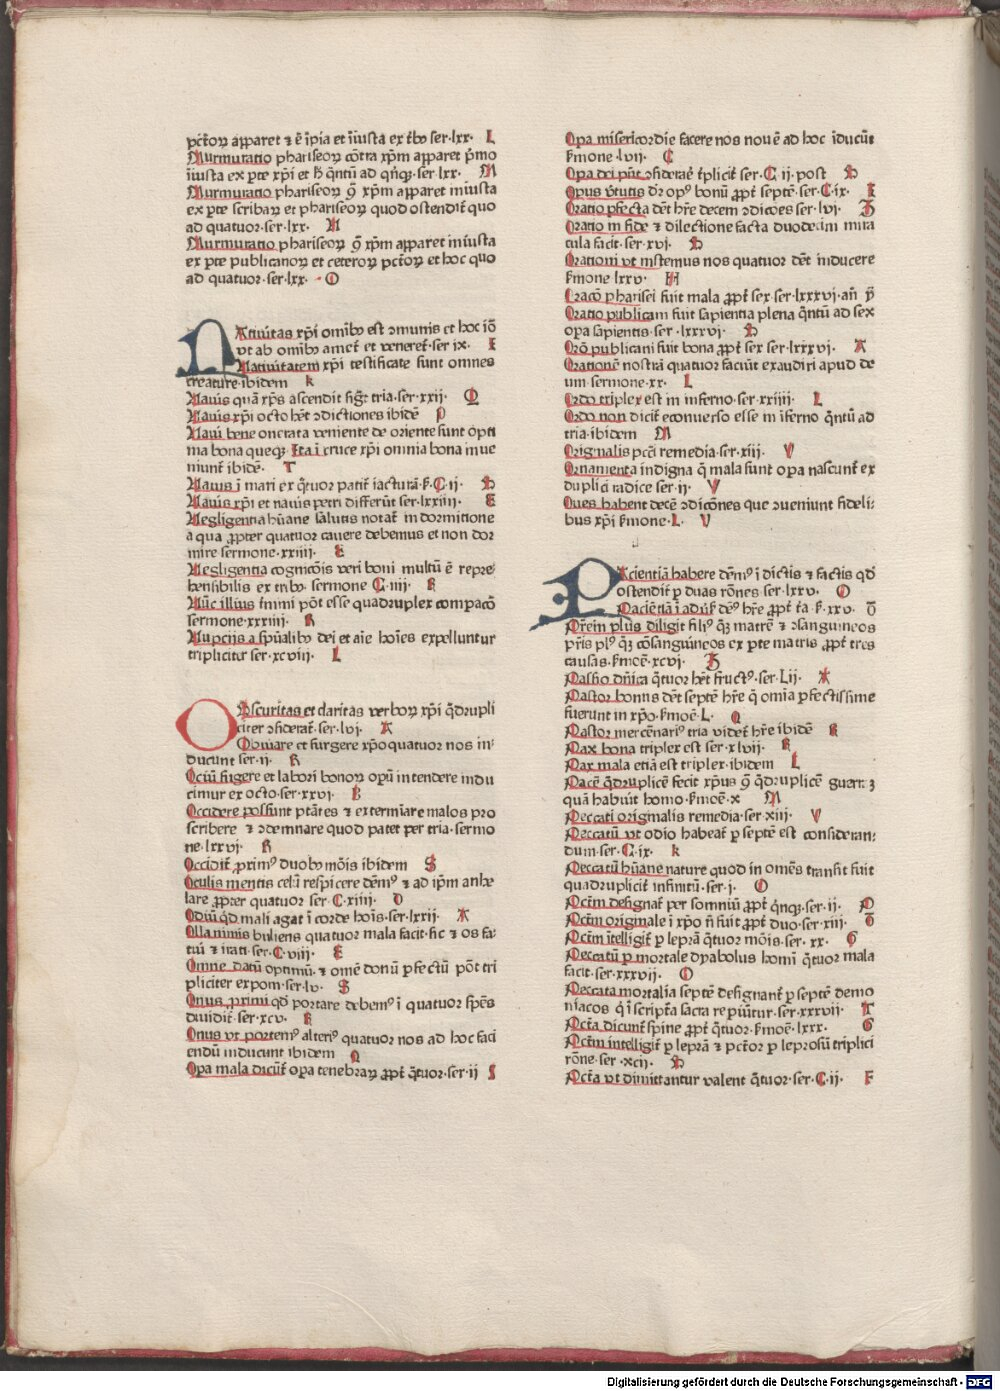 pctoꝝ apparet ⁊ ē īpia et īiusta ex tribꝰ ser·lxx· L
Murmuratio phariseoꝝ cōtra xp̄m apparet pͥmo
īiusta ex ꝑte xp̄i et hͦ qͣntū ad qͥnqꝫ·ser·lxx· M
Murmuratio phariseoꝝ ꝯͣ xp̄m apparet iniusta
ex ꝑte scribaꝝ et phariseoꝝ quod ostendit̄ quo
ad quatuor·ser·lxx· N
Murmuratio phariseoꝝ ꝯͣ xp̄m apparet iniusta
ex ꝑte publicanoꝝ et ceteroꝝ pctoꝝ et hoc quo
ad quatuor·ser·lxx· O
NAtiuitas xp̄i omībꝰ est ꝯmunis et hoc iō
vt ab omībꝰ amet̄ et veneret̄·ser ix· I
Natiuitatem xp̄i testificate sunt omnes
creature·ibidem k
Nauis quā xp̄s ascendit figͣt tria·ser·xxij· Q
Nauis xp̄i octo hēt ꝯdictiones ibidē P
Naui bene onerata veniente de oriente sunt opti
ma bona queqꝫ· Ita ī cruce xp̄i omnia bona inue
niunt̄ ibidē· T
Nauis ī mari ex qͣtuor patit̄ iacturā·ẜ·C·ij·
Nauis xp̄i et nauis petri differūt ser·lxxiiij· E
Negligentia hūane salutis notat̄ in dormitione
a qua ꝓpter quatuor cauere debemus et non dor
mire sermone·xxiiij· E
Negligentia cognicōis veri boni multū ē repre
hensibilis ex tribꝰ· sermone C·iiij· R
Nūc illius tmini pōt esse quadruplex compacō
sermone·xxxiiij· R
Nupcijs a spūalibꝰ dei et aīe hoīes expelluntur
tripliciter ser·xcviij· L
OBscuritas et claritas verboꝝ xp̄i qͣdrupli
citer ꝯsiderat̄·ser·lvj· A
Obuiare et surgere xp̄o quatuor nos in⸗
ducunt ser·ij· R
Ociū fugere et labori bonoꝝ opū intendere indu
cimur ex octo·ser·xxvj· B
Occidere possunt ptātes ⁊ extermiare malos pro
scribere ⁊ ꝯdemnare quod patet per tria·sermo
ne·lxxvj· R
Occidit̄ primꝰ duobꝰ mōis ibidem S
Oculis mentis celū respicere dēmꝰ ⁊ ad ip̄m anhe
lare ꝓpter quatuor ser·C·xiiij· O
Odiū qd̄ mali agāt ī corde hoīs·ser·lxxij· A
Olla nimis buliens quatuor mala facit·sic ⁊ os fa⸗
tui ⁊ irati·ser·C·viij· E
Omne datū optimū· ⁊ omē donū ꝑfectū pōt tri
pliciter expom·ser·lv· S
Onus primi qd̄ portare debemꝰ ī quatuor spēs
diuidit̄·ser·xcv· R
Onus vt portemꝰ alterꝰ quatuor nos ad hoc faci
endū inducunt ibidem Q
Opa mala dicūt̄ opa tenebraꝝ ꝓpt̄ qͣtuor·ser·ij S
Opa misericordie facere nos nouē ad hoc īducūt
ẜmone·lvij· C
Opa dei pn̄t ꝯsiderat̄ tͥplicit̄ ser·C·ij·post
Opus vͥtutis dr̄ opꝰ bonū ꝓpt̄ septē·ser·C·ix· I
Oratio ꝑfecta dēt hr̄e decem ꝯdicōes ser·lvj·
Oratio in fide ⁊ dilectione facta duodecim mira
cula facit·ser·xvj·
Orationi vt instemus nos quatuor dēt inducere
ẜmone·lxxv· H
Oracō pharisei fuit mala ꝓpt̄ sex ser·lxxxvj·añ
Oratio publicani fuit sapientia plena qͣntū ad sex
opa sapientis·ser·lxxxvj·
Orō publicani fuit bona ꝓpt̄ sex ser·lxxxvj· A
Orationē nostrā quatuor faciūt exaudiri apud de
um·sermone·xx· L
Ordo triplex est in inferno·ser·xxiiij· L
Ordo non dicit̄ econuerso esse in īferno qͣntū ad
tria·ibidem M
Originalis pcti remedia·ser·xiij· V
Ornamenta indigna qͣ mala sunt opa nascunt̄ ex
duplici radice ser·ij· V
Oues habent decē ꝯdicōnes que ꝯueniunt fideli⸗
bus xp̄i ẜmone·L· V
PAcientiā habere dēmꝰ ī dictis ⁊ factis qd̄
ostendit̄ ꝑ duas rōnes ser·lxxv· O
Paciētiā ī adūs dēꝰ hr̄e ꝓpt̄ tͥa·ẜ·xxv·
Prēm plus diligit filiꝰ qͣꝫ matrē ⁊ ꝯsanguineos
pr̄is plꝰ qͣꝫ cōsanguineos ex ꝑte matris ꝓpt̄ tres
causas·ẜmoē·xcvj·
Passio dn̄ica qͣtuor hēt fructꝰ·ser·Lij· A
Pastor bonus dēt septē hr̄e qͣ omia ꝑfectissime
fuerunt in xp̄o·ẜmoē·L· Q
Pastor mercēnariꝰ tria videt̄ hr̄e ibidē R
Pax bona triplex est ser·xlvij· R
Pax mala etiā est triplex·ibidem L
Pacē qͣdruplicē fecit xp̄us ꝯͣ qͣdruplicē guerrā
quā habuit homo·ẜmoē·x M
Peccati originalis remedia·ser·xiij· V
Peccatū vt odio habeat̄ ꝑ septē est consideran⸗
dum·ser·C·ix· k
Peccatū hūane nature quod in omēs transit fuit
quadruplicit̄ infinitū·ser·j· O
Pctm̄ designat̄ per somniū ꝓpt̄ qͥnqꝫ·ser·ij· P
Pctm̄ originale ī xp̄o n̄ fuit ꝓpt̄ duo·ser·xiij·
Pctm̄ ītelligit̄ ꝑ leprā qͣtuor mōis·ser·xx· G
Peccatū ꝑ mortale dyabolus homi qͣtuor mala
facit·ser·xxxvij· O
Peccata mortalia septē designant̄ ꝑ septē demo
niacos qͥ ī scriptͣa sacra repiūtur·ser·xxxvij· T
Pctā dicunt̄ spine ꝓpt̄ qͣtuor·ẜmoē·lxxx· G
Pctm̄ intelligit̄ ꝑ leprā ⁊ pctor ꝑ leprosū triplici
rōne·ser·xcij·
Pctā vt dimittantur valent qͣtuor·ser·C·ij· F
Digitalisierung gefördert durch die Deutsche Forschungsgemeinschaft - DFG